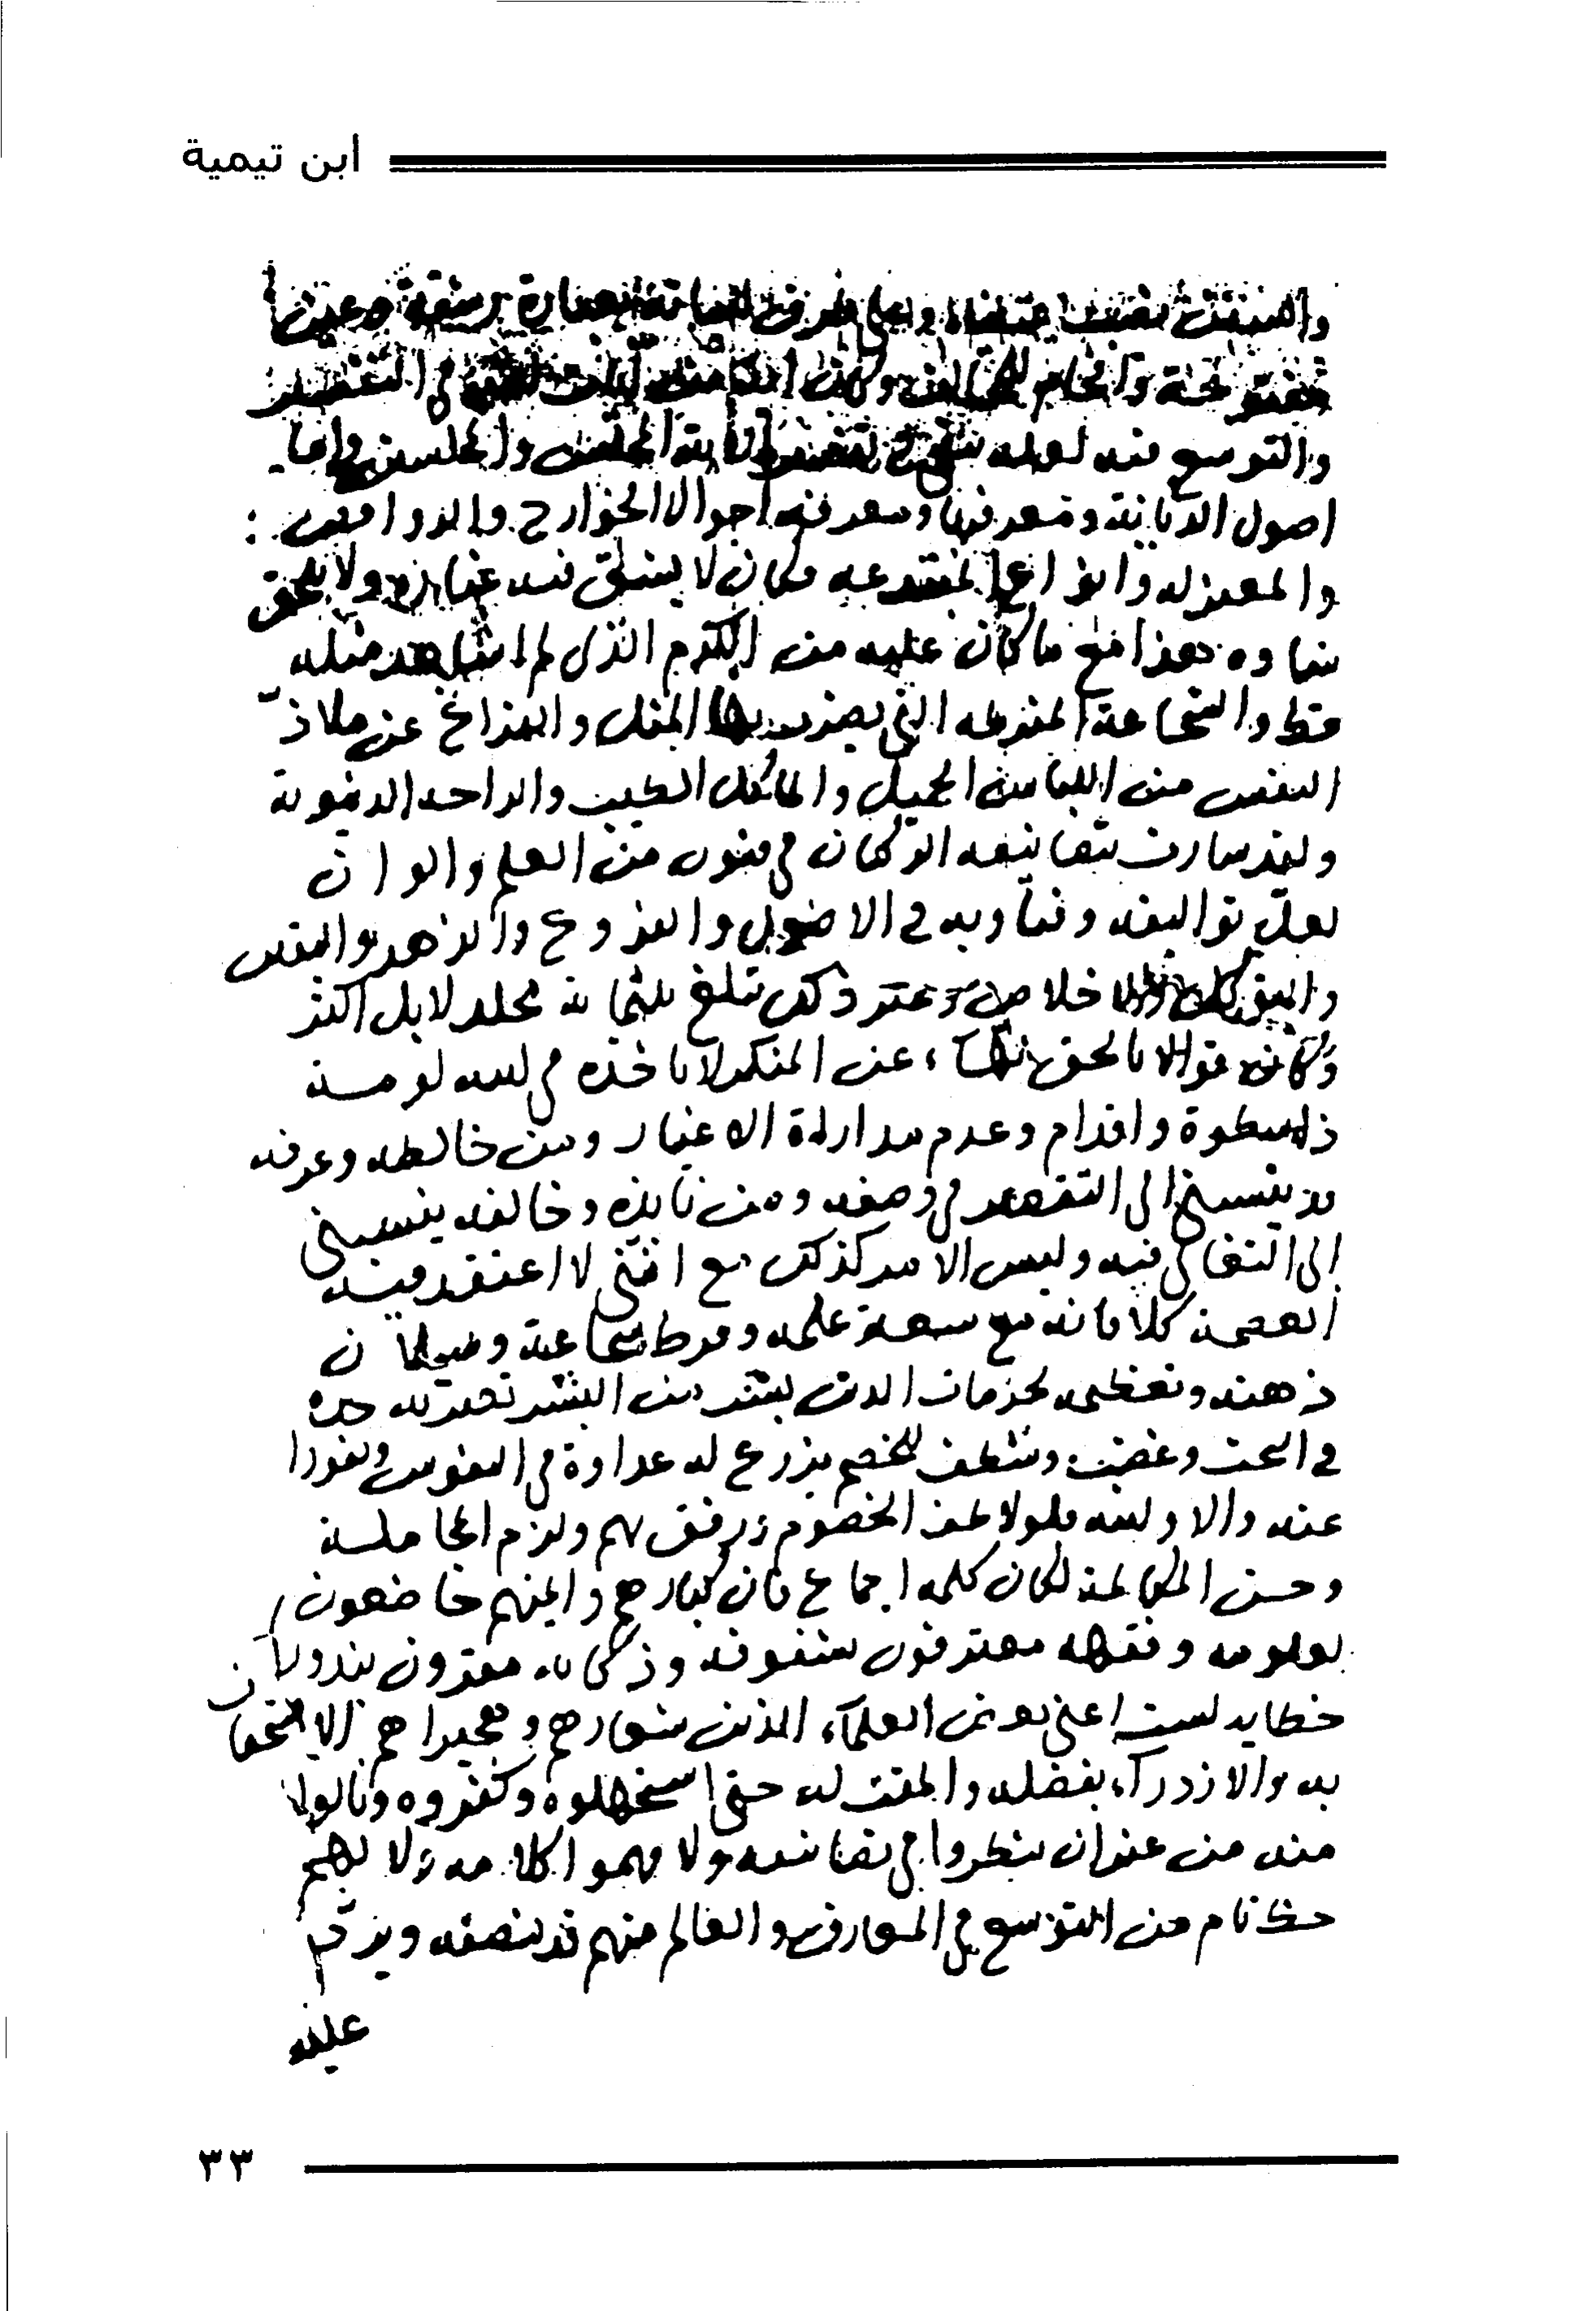 ابن تيمية
والسنة نصب عينيه وعلى طرف لسانه بعبارة رشيقة وعين
مفتوحة وافحام للمخالف وكان اية من ايات الله في التفسير
والتوسع فيه لعله يبقى في تفسير الاية المجلس والمجلسين واما
اصول الديانة ومعرفتها ومعرفة احوال الخوارج والروافض
والمعتزله وانواع المبتدعه فكان لا يشق فيه غباره ولا يلحق
شاوه هذا مع ما كان عليه من الكرم الذي لم اشاهد مثله
قط والشجاعة المفرطه التي يضرب بها المثل والفراغ عن ملاذ
النفس من اللباس الجميل والماكل الطيب والراحه الدنيوية
ولقد سارت بتصانيفه الركبان في فنون من العلم والوان
لعل تواليفه وفتاويه في الاصول والفروع والزهد واليقين
والتوكل والاخلاص وغير ذلك تبلغ ثلثمائة مجلد لا بل اكثر
وكان قوالا بالحق نهاء عن المنكر لا تاخذه في الله لومة
ذا سطوة واقدام وعدم مداراة الاغيار ومن خالطه وعرفه
قد ينسبني الى التقصير في وصفه ومن نابذه وخالفه ينسبني
الى التغالي فيه وليس الامر كذلك مع انني لا اعتقد فيه
العصمة كلا فانه مع سعة علمه وفرط شجاعته وسيلان
ذهنه وتعظيمه لحرمات الدين بشر من البشر تعتريه حدة
في البحث وغضب وشظف للخصم يزرع له عداوة في النفوس ونفورا
عنه والا والله فلولا طف الخصوم ورفق بهم ولزم المجاملة
وحسن المكالمة لكان كلمه اجماع فان كبارهم وايمتهم خاضعون
لعلومه وفقهه معترفون بشفوفه وذكائه مقرون بندور
خطايه لست اعني بعض العلماء الذين شعارهم وهجيراهم الاستخفاف
به والازدراء بفضله والمقت له حتى استجهلوه وكفروه ونالوا
منه من غير ان ينظروا في تصانيفه ولا فهموا كلامه ولا لهم
حظ تام من التوسع في المعارف والعالم منهم قد ينصفه ويرد
عليه
٣٣